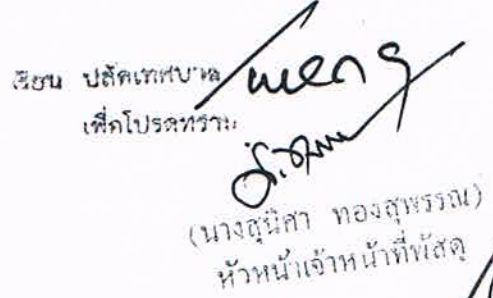 เรียน ปลัดเทศบาล
เพื่อโปรดทราบ
(นางสุนิศา ทองสุพรรณ)
หัวหน้าเจ้าหน้าที่พัสดุ